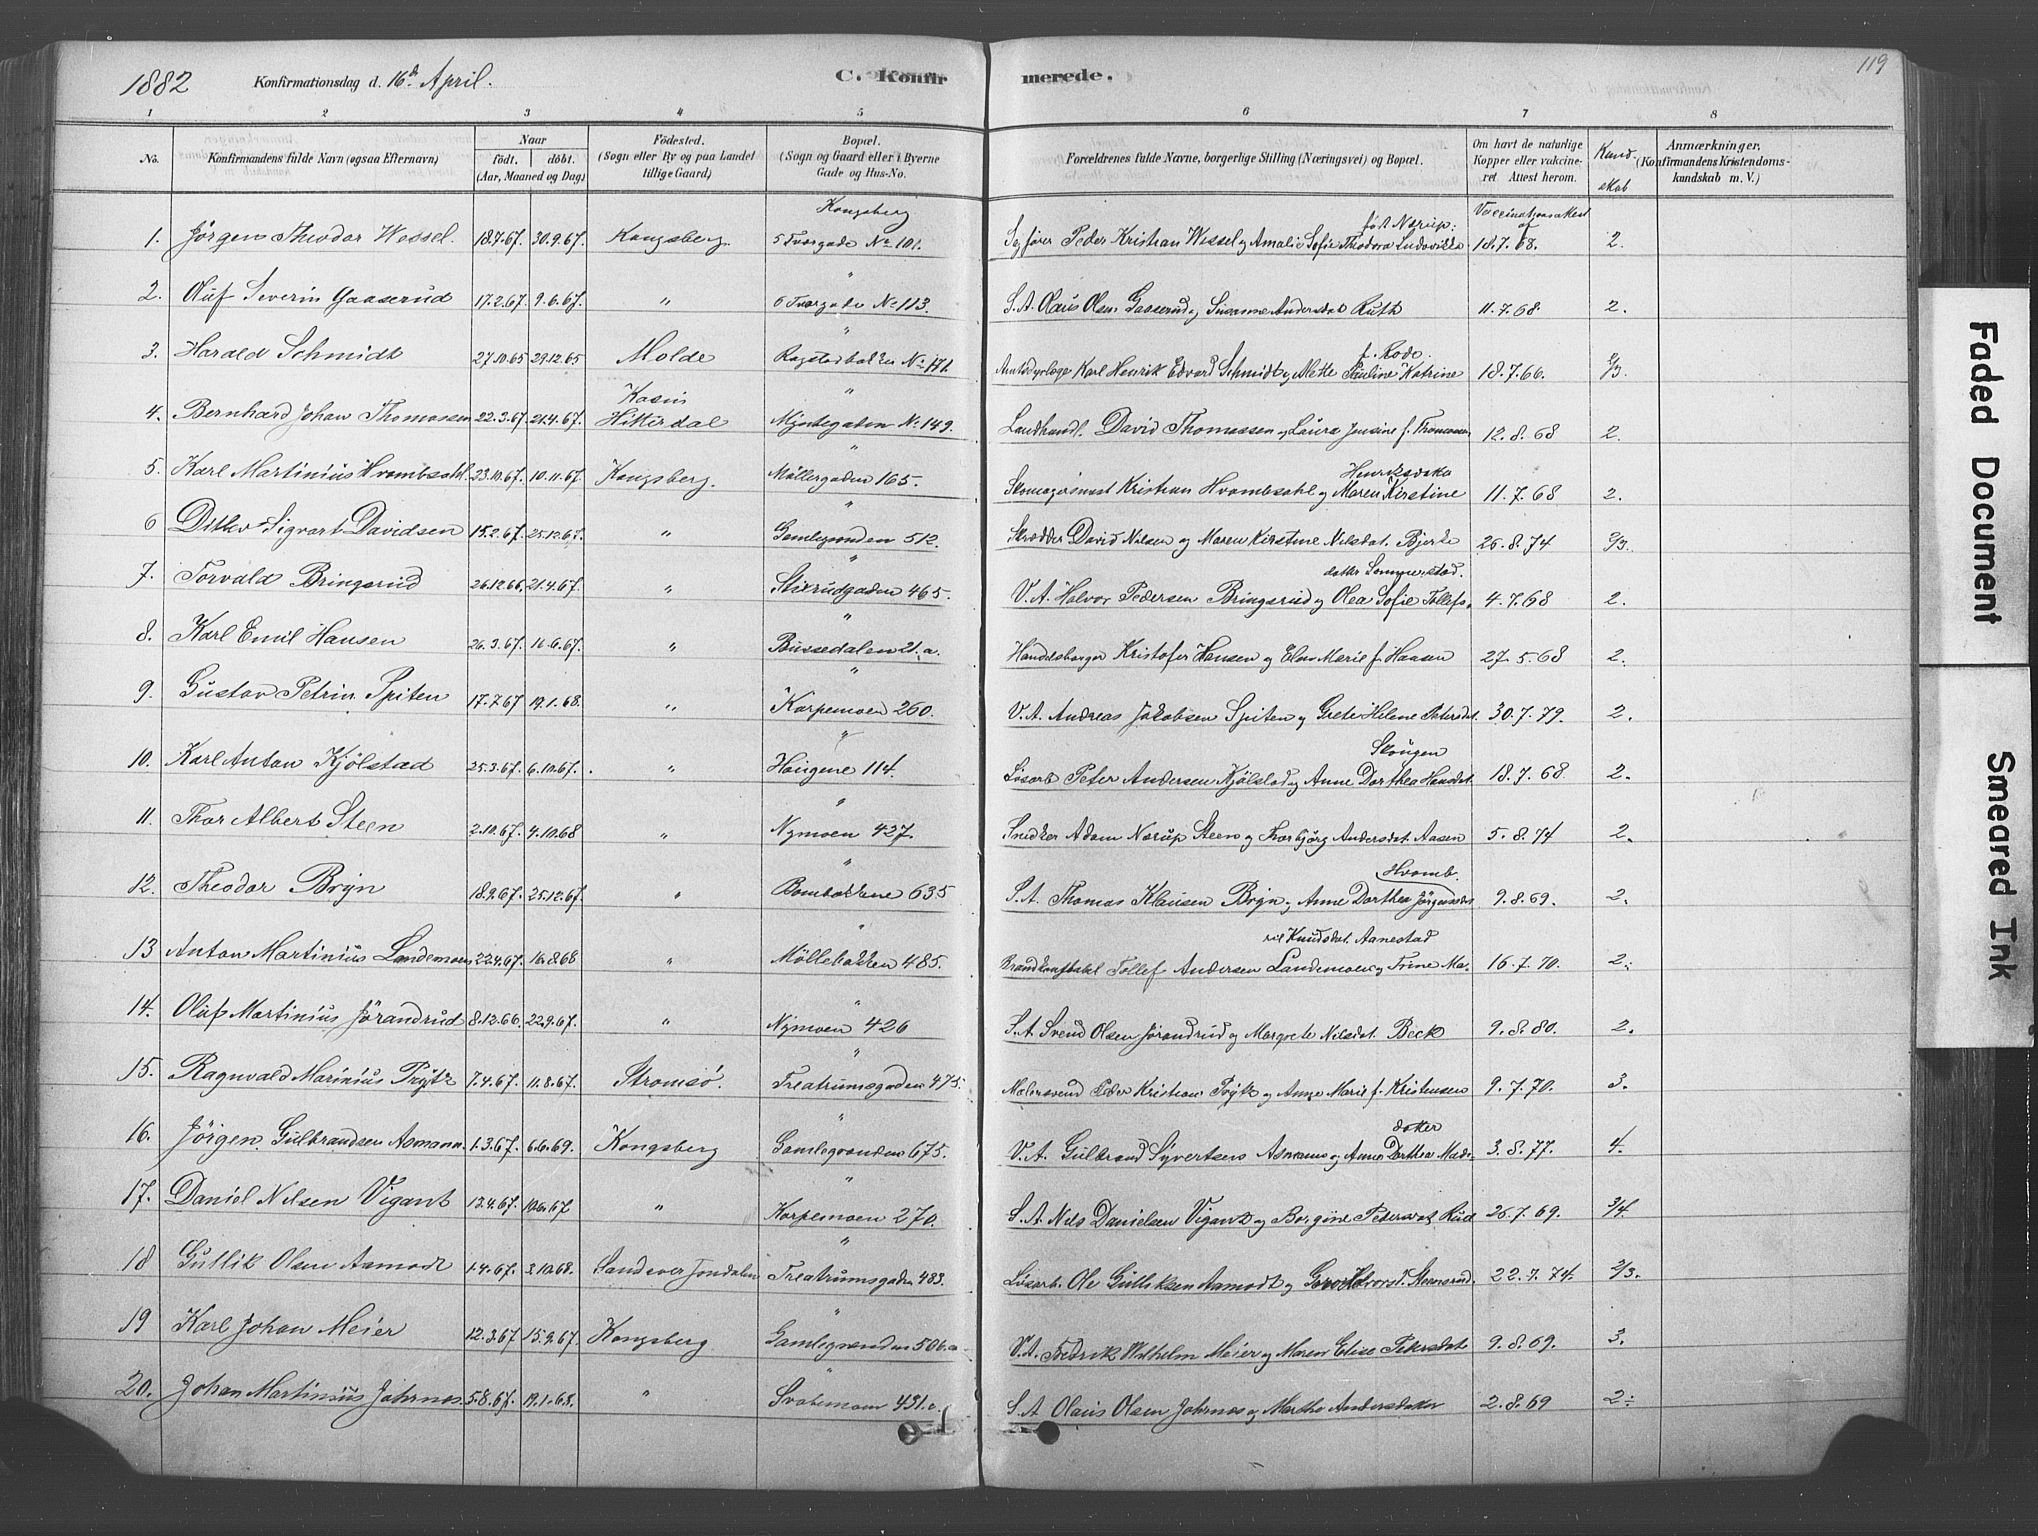 1882 Konfirmationsdag d. 16de April. C. Konfirmerede. 119
1 2 3 4 5 6 7 8
No. Konfirmandens fulde Navn (ogsaa Efternavn) Naar født. døbt. (Aar, Maaned og Dag) Fødested. (Sogn eller By og paa Landet tillige Gaard) Bopæl. (Sogn og Gaard eller i Byerne Gade og Hus-No. Forældrenes fulde Navne, borgerlige Stilling (Næringsvei) og Bopæl. Om havt de naturlige Kopper eller vaccineret Attest herom. Kundskab Anmærkninger. (Konfirmandens Kristendomskundskab m. V.)
Kongsberg født Nærup: Vaccinationsattest af
1. Jörgen Theodor Wessel. 18.7.67. 30.9.67. Kongsberg. 5 Tvergade No 101. Peder Kristian Wessel og Amalie Sofie Theodora Ludovikke 18.7.68. 2.
2. Oluf Severin Gaaserud 17.2.67. 9.6.67. " 6 Tvergade No 113. S.A. Olaus Olsen Gaaserud og Susanne Andersdat Ruth 11.7.68. 2.
f. Rode.
3. Harald Schmidt 27.10.65 29.12.65 Molde No 171. Karl Henrik Edvard Schmidt og Mette Pauline Katrine 18.7.66. 2/3.
4. Bernhard Johan Thomassen 22.3.67. 21.4.67. Hitterdal Myntegaden No 149. Landhandl. David Thomassen og Laura Jensine f. Thomassen 12.8.68 2.
Henriksdatter
5. Karl Martinius Hvambsahl. 23.10.67. 10.11.67. Kongsberg. Möllergaden 165. Skomagersvend Kristian Hvambsahl og Maren Kirstine 11.7.68 2.
6 Ditlev Sigvart Davidsen 15.2.67. 25.12.67. " Gamlegrinden 512. Skrædder David Nilsen og Maren Kirstine Nilsdat. Bjerke 26.8.74 2/3.
datter Semmestad.
7. Torvald Bringsrud 26.12.66. 21.4.67. " Stixrudgaden 465. V.A. Halvor Pedersen Bringsrud og Olea Sofie Tollefs. 4.7.68 2.
8. Karl Emil Hansen 26.3.67. 16.6.67. " Bussedalen 21.a. Handelsborger Kristofer Hansen og Elen Marie f. Hansen 27.5.68 2.
9. Gustav Petrin Spiten 17.7.67 19.1.68. " Karpemoen 260. V.A. Andreas Jakobsen Spiten og Grete Helene Petersdt. 30.7.79. 2.
Skougen
10. Karl Anton Kjölstad 25.3.67. 6.10.67. " Hougene 114. Lösarb. Peter Andersen Kjölstad og Anne Dorthea Hansdat. 18.7.68 2.
11. Thor Albert Steen 2.10.67. 4.10.68 " Nymoen 427. Snedker Adam Nærup Steen og Thorbjörg Andersdat. Aasen 5.8.74 2.
Hvamb.
12. Theodor Bryn 18.9.67. 25.12.67. " Bombakkene 635 S.A. Thomas Klausen Bryn og Anne Dorthea Jörgensdat 9.8.69. 2.
rie Knudsdat. Aanestad
13 Anton Martinius Landemoen 22.4.67. 16.8.68 " Möllebakken 485. Brandkonstabel Tollef Andersen Landemoen og Trine Ma- 16.7.70. 2.
14. Oluf Martinius Jörandrud 8.12.66. 22.9.67. " Nymoen 426 S.A. Svend Olsen Jörandrud og Margrete Nilsdat. Beck 9.8.80. 2.
15. Ragnvald Marinius Prytz 7.4.67. 11.8.67. Strömsö. Treatrumsgaden 475. Malersvend Peder Kristian Prytz og Anne Marie f. Kristensen 9.7.70. 3.
datter
16. Jörgen Gulbrandsen Asmann. 1.3.67. 6.6.69. Kongsberg Gamlegrinden 675. V.A. Gulbrand Syvertsen Asmann og Anne Dorthea Mads- 3.8.77. 4.
17. Daniel Nilsen Vigant 13.4.67. 10.6.67 " Karpemoen 270. S.A. Nils Danielsen Vigant og Borgine Pedersdat Rud 26.7.69. 3/4.
18 Gullik Olsen Aamodt 1.4.67. 2.10.68. Sandsver Jondalen Treatrumsgaden 483. Lösarb. Ole Gulliksen Aamodt og 22.7.74. 2/3.
19 Karl Johan Meier 12.3.67 15.9.67. Kongsberg Gamlegrinden 506.a. V.A. Fredrik Wilhelm Meier og Maren Elise Petersdat 9.8.69. 3.
20. Johan Martinius Jahrnes 5.8.67. 19.1.68. " Svabemoen 431.c. S.A. Olaus Olsen Jahrnes og Marthe Andersdatter 2.8.69 2.
Faded Document
Smeared Ink